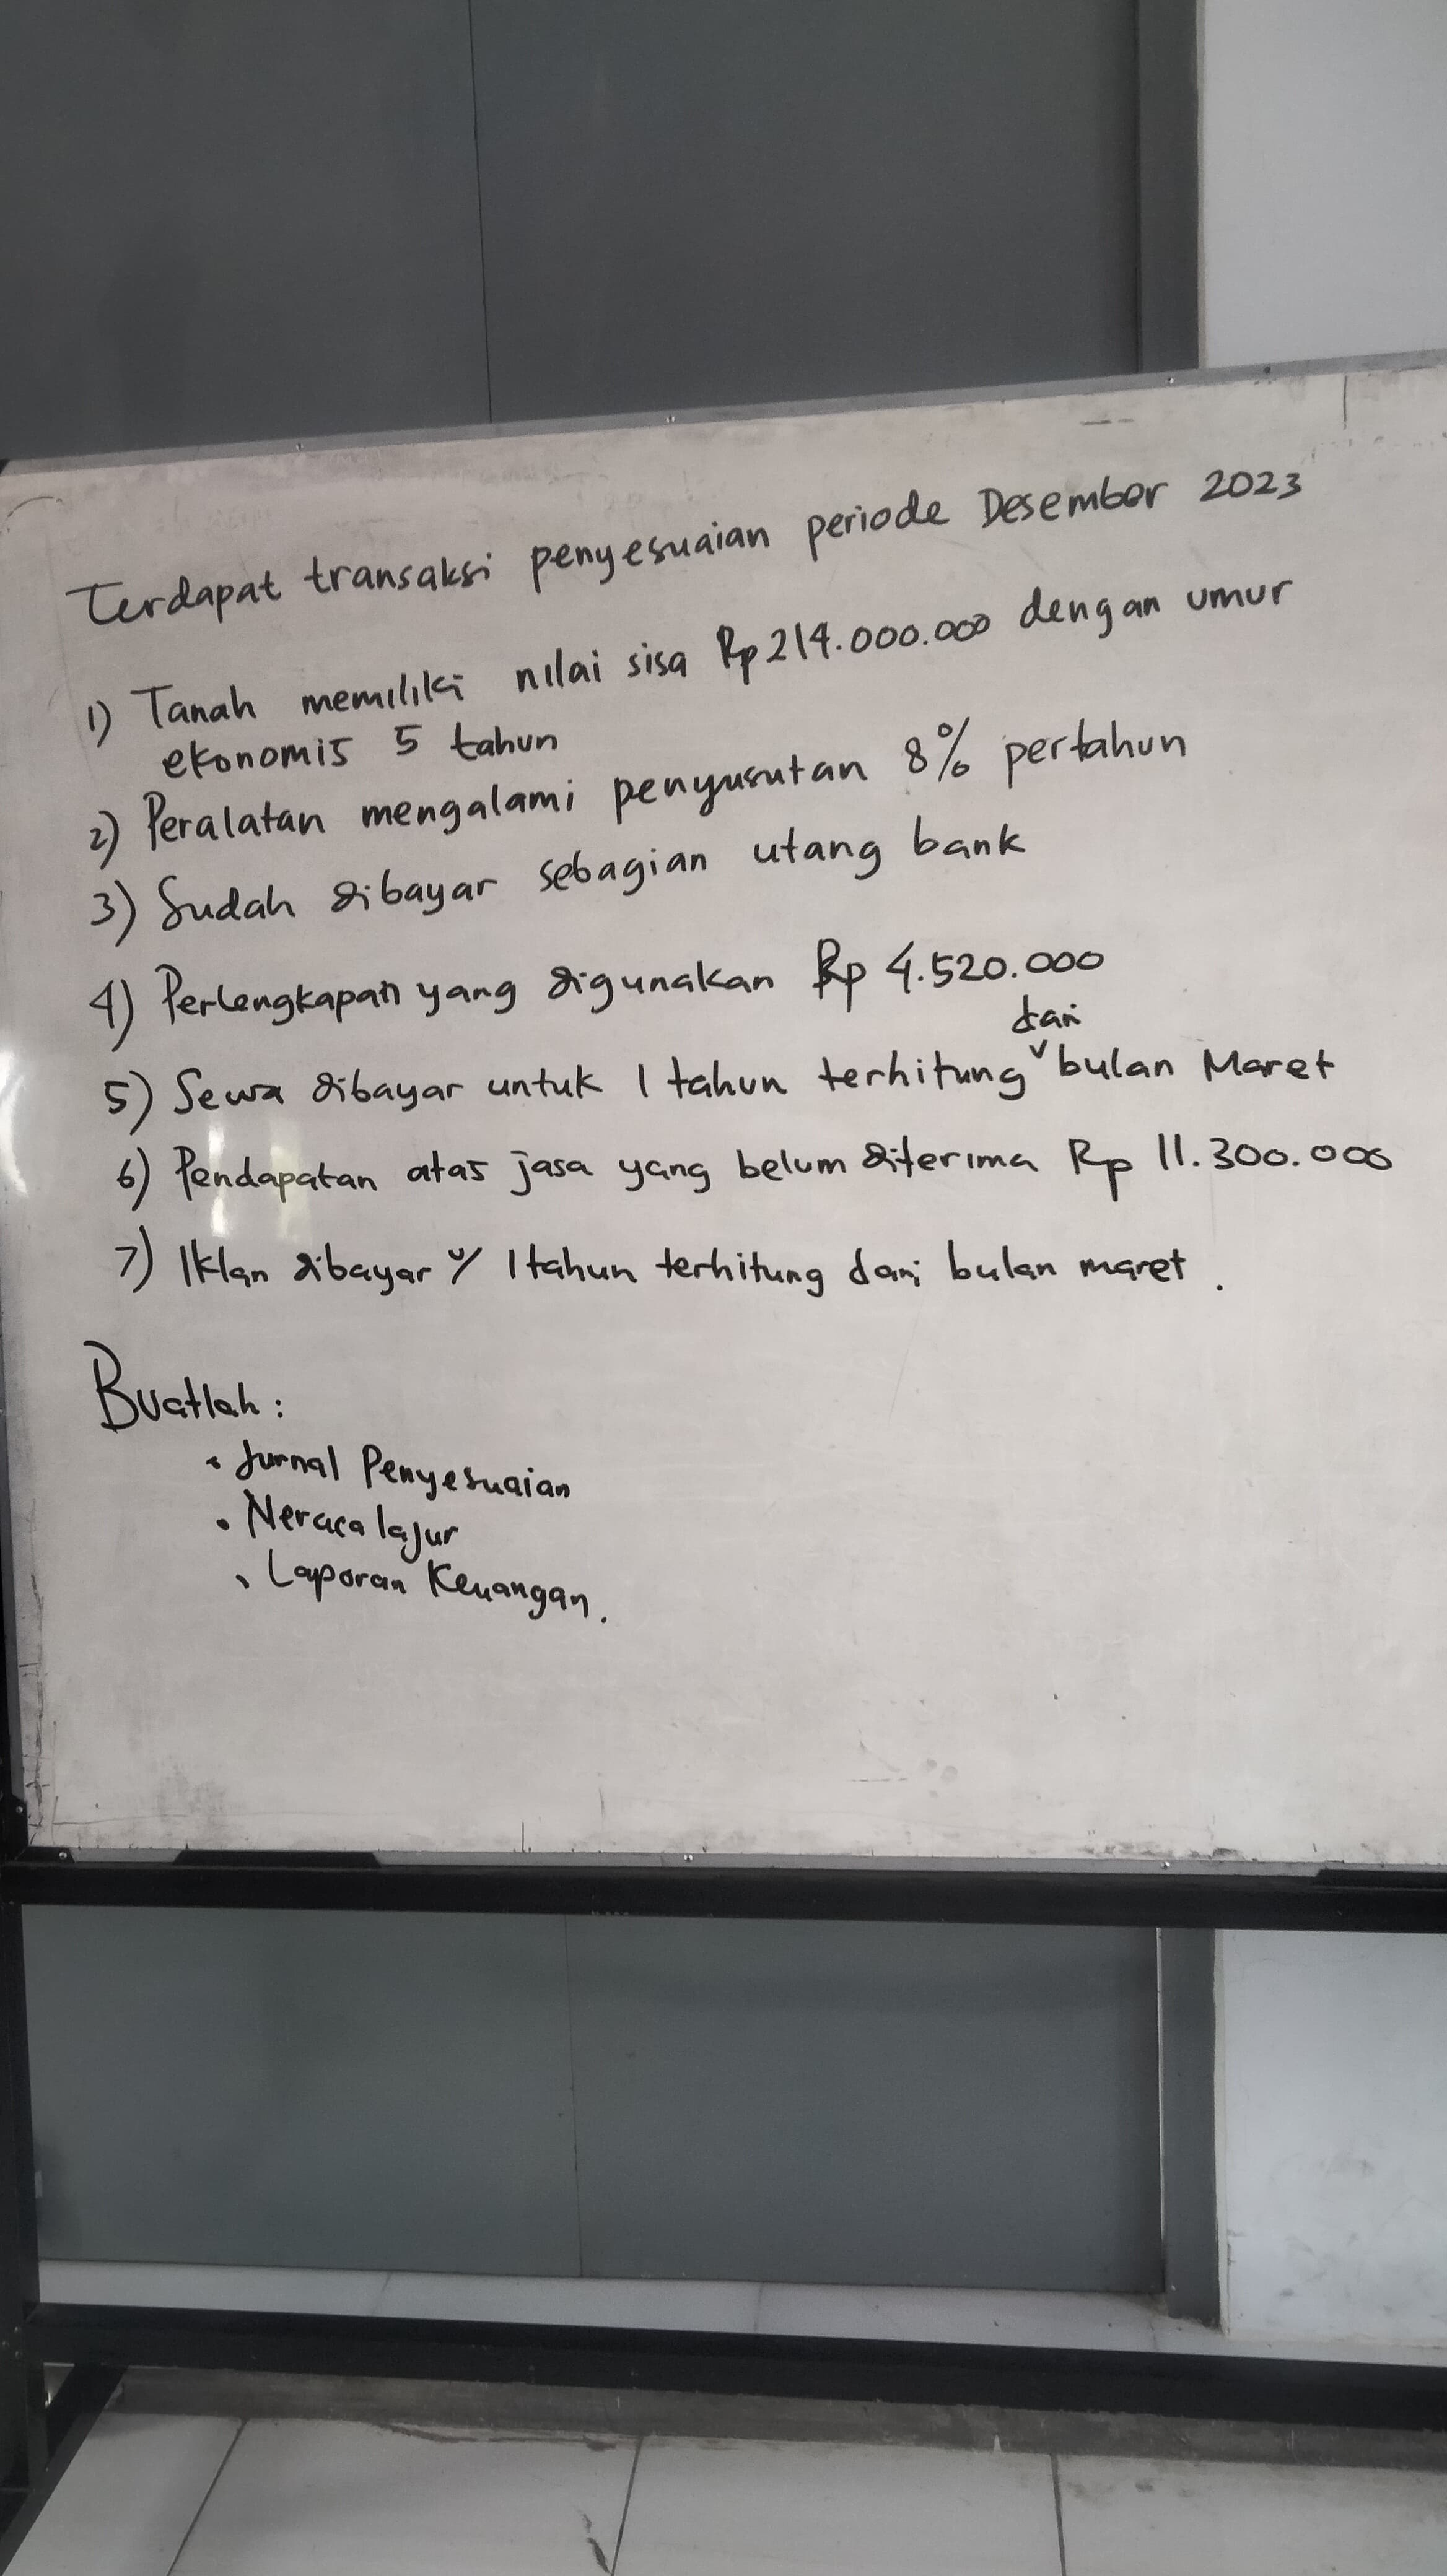 Terdapat transaksi penyesuaian periode Desember 2023
1) Tanah memiliki nilai sisa Rp 214.000.000 dengan umur
ekonomis 5 tahun
2) Peralatan mengalami penyusutan 8% pertahun
3) Sudah dibayar sebagian utang bank
4) Perlengkapan yang digunakan Rp 4.520.000
5) Sewa dibayar untuk 1 tahun terhitung dari bulan Maret
6) Pendapatan atas jasa yang belum diterima Rp 11.300.000
7) Iklan dibayar u/ 1 tahun terhitung dari bulan maret.
Buatlah:
• Jurnal Penyesuaian
• Neraca lajur
• Laporan Keuangan.